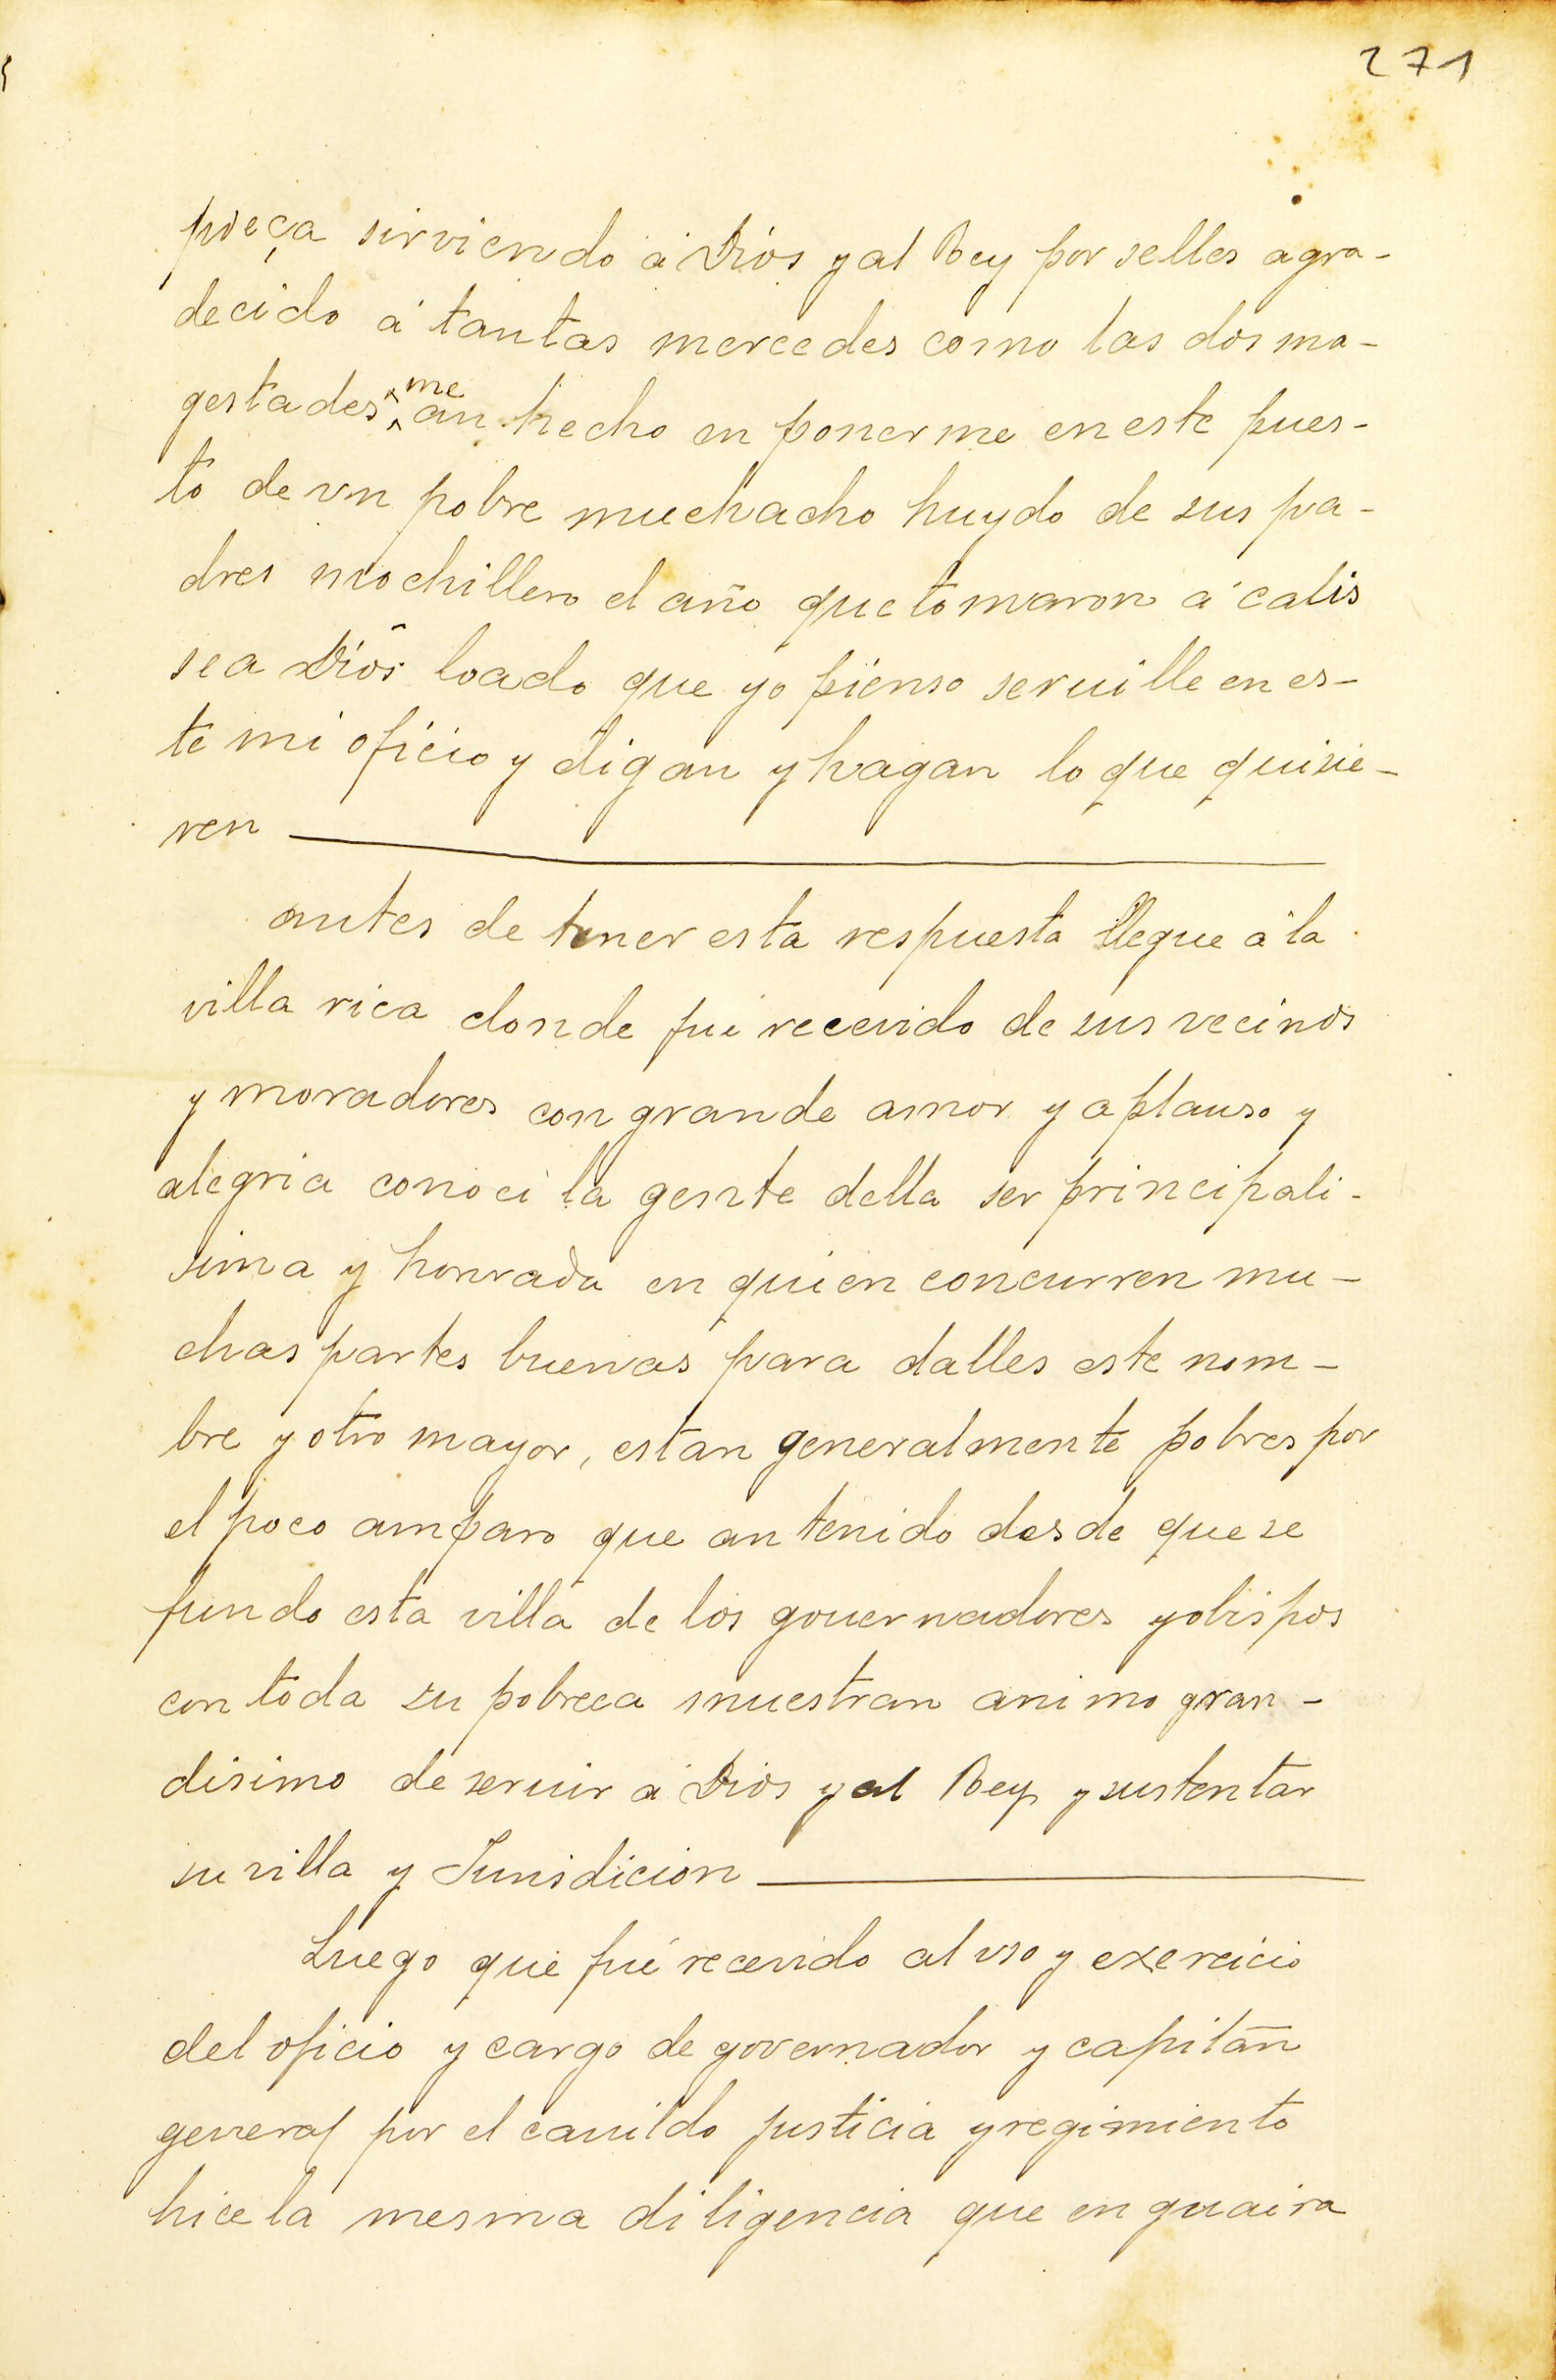 271
pieça sirviendo á Dios y al Rey por selles agra-
decido á tantas mercedes como las dos ma-
gestades me an hecho en ponerme en este pues-
to de vn pobre muchacho huydo de sus pa-
dres mochillero el año que tomaron á calis
sea Dios loado que yo pienso seruille en es-
te mi oficio y digan y hagan lo que quisie-
ren
antes de tener esta respuesta llegue á la
villa rica donde fui recevido de sus vecinos
y moradores con grande amor y aplauso y
alegria conoci la gente della ser principali-
sima y honrada en quien concurren mu-
chas partes buenas para dalles este nom-
bre y otro mayor, estan generalmente pobres por
el poco amparo que an tenido desde que se
fundo esta villa de los gouernadores y obispos
con toda su pobreca muestran animo gran-
disimo de seruir á Dios y al Rey y sustentar
su villa y Jurisdicion
Luego que fui recevido al vso y exercicio
del oficio y cargo de governador y capitan
general por el cauildo justicia y regimiento
hice la mesma diligencia que en guaira